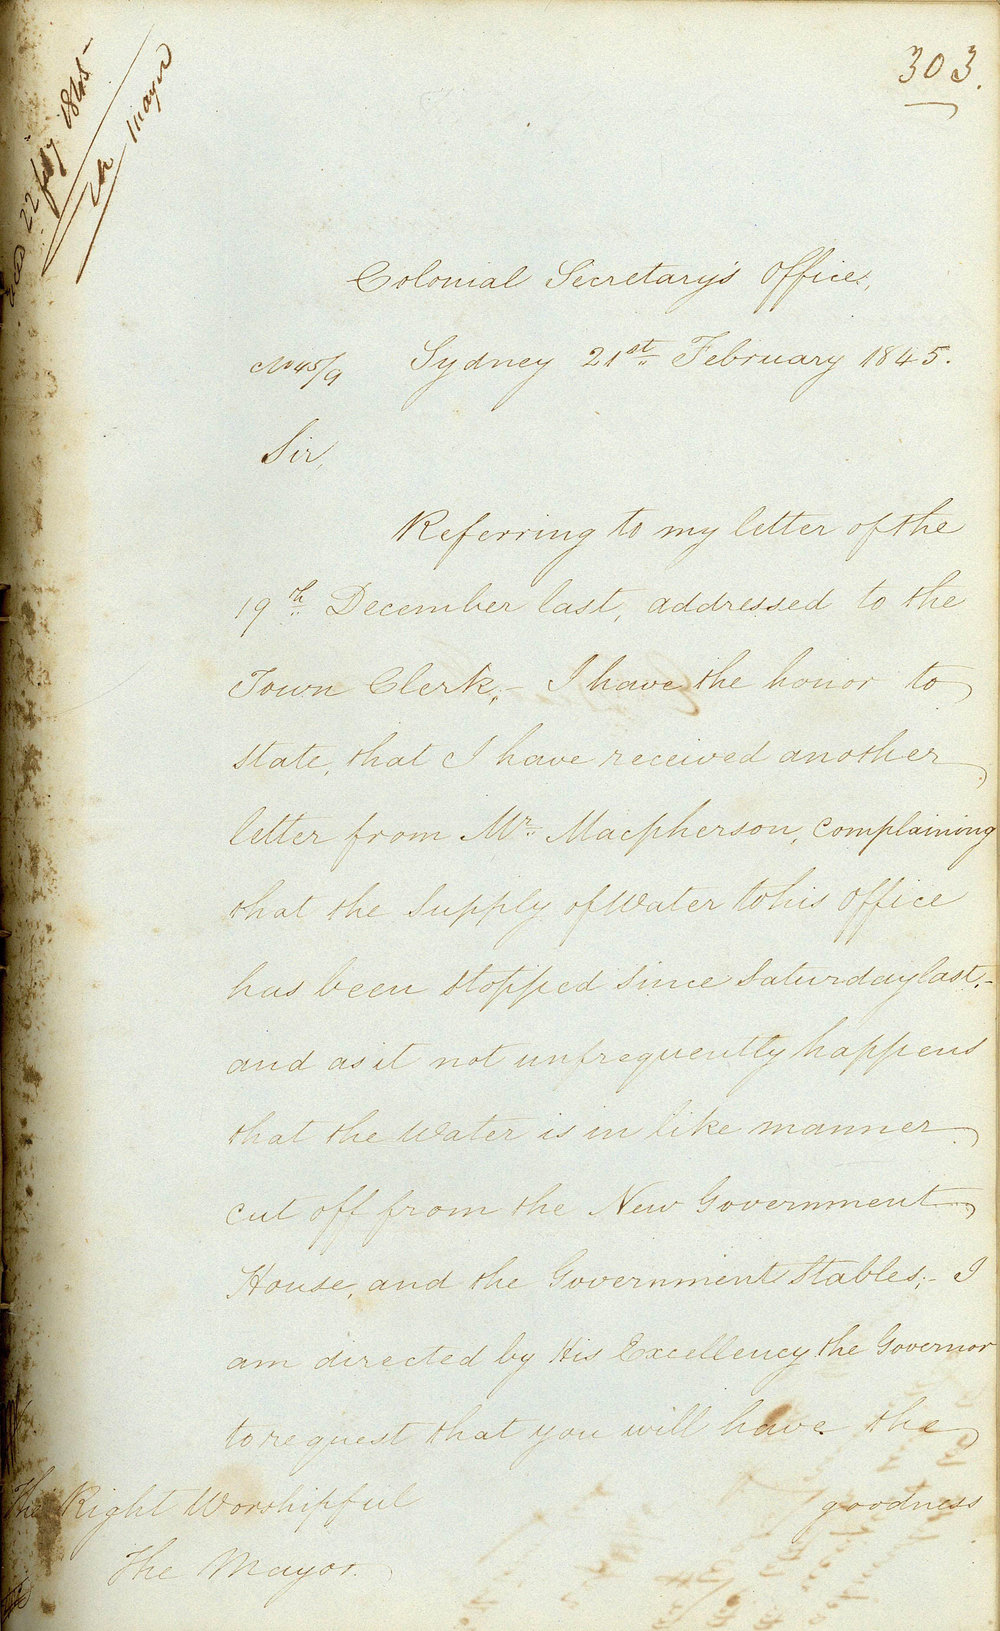 303.
22 Feby 1845
Mayor
Colonial Secretary's Office,
No 45/9 Sydney 21st February 1845.
Sir,
Referring to my letter of the
19th December last, addressed to the
Town Clerk,- I have the honor to
state, that I have received another
letter from Mr. Macpherson, complaining
that the Supply of Water to his Office
has been stopped since Saturday last,-
and as it not unfrequently happens
that the Water is in like manner
cut off from the New Government
House, and the Government Stables;- I
am directed by His Excellency the Governor
to request that you will have the
The Right Worshipful
goodness
The Mayor.